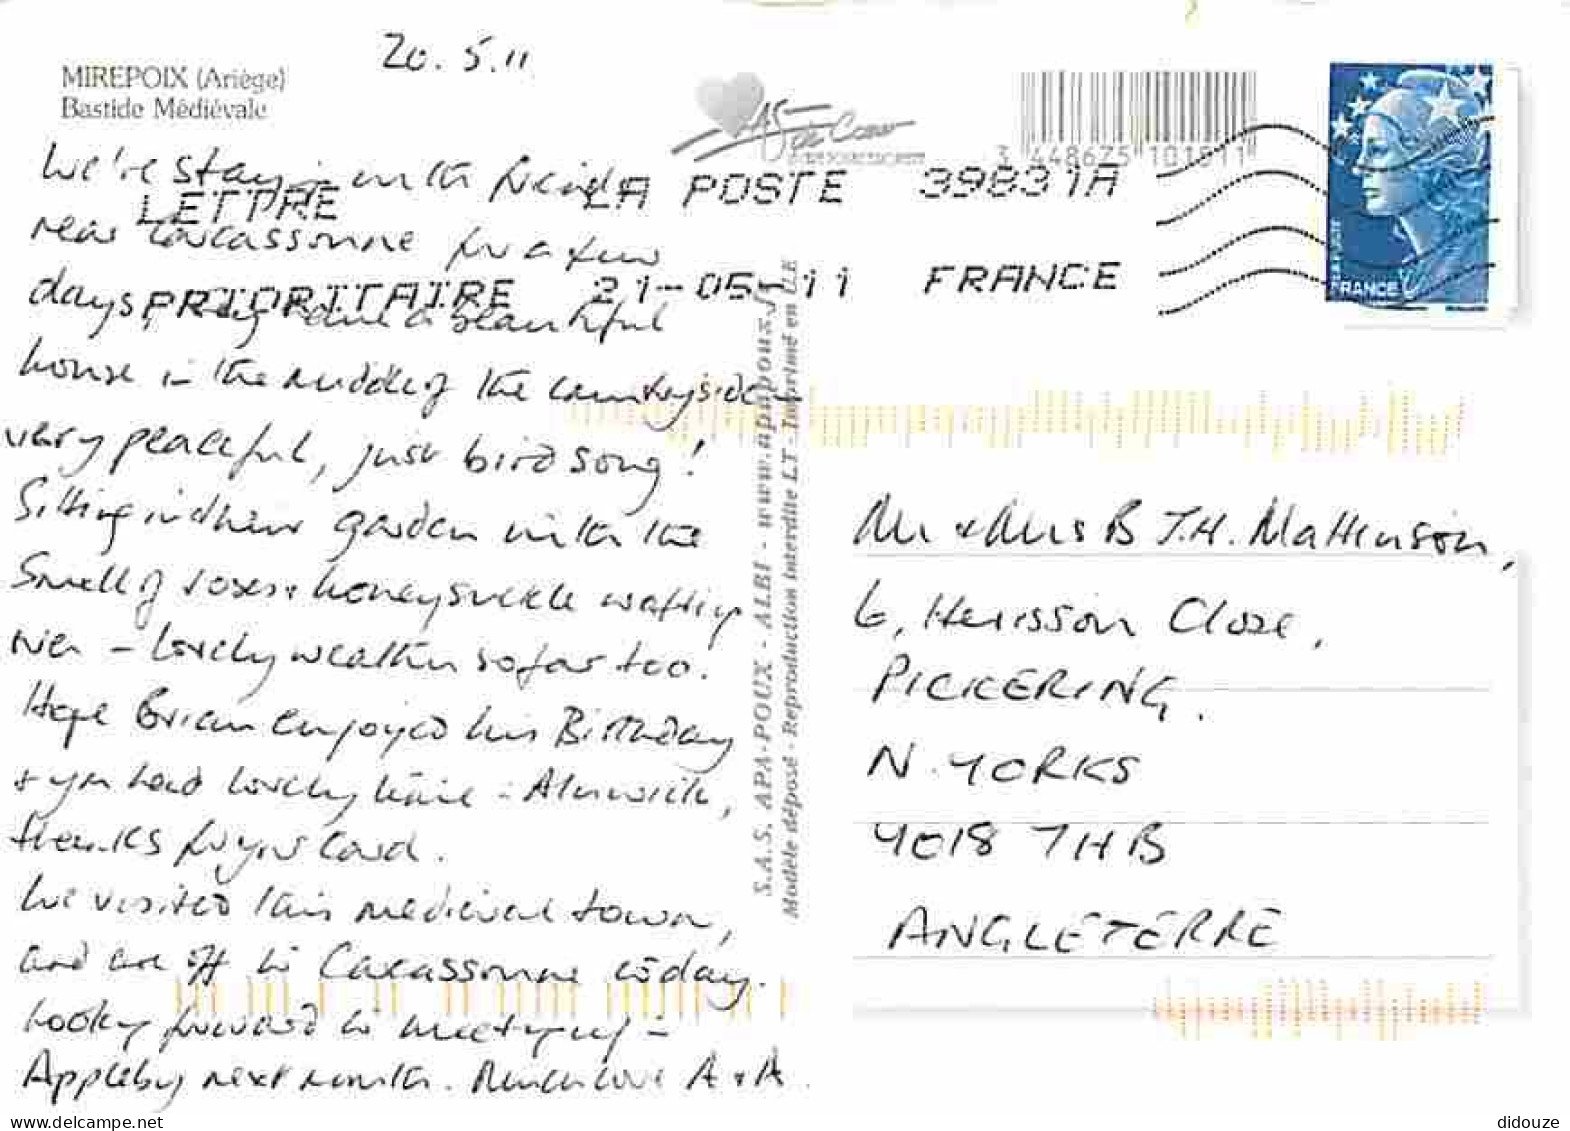 20.5.11
MIREPOIX (Ariège)
Bastide Médiévale
AS de Coeur
3 448675 101511
LETTRE
PRIORITAIRE
LA POSTE 39831A
21-05-11 FRANCE
FRANCE
We're stay in with friends
near Carcassonne for a few
days, they have a beautiful
house in the middle of the countryside
very peaceful, just bird song!
Sitting in their garden with the
smell of roses + honeysuckle wafting
over - lovely weather so far too.
Hope Brian enjoyed his Birthday
+ you had lovely time in Alnwick,
thanks for your card.
We visited this medieval town,
and are off to Carcassonne today.
Looking forward to meeting up in
Appleby next month. Much love A + A.
S.A.S. APA-POUX - ALBI - www.apapoux
Modèle déposé - Reproduction interdite LT - Imprimé en UE
Mr + Mrs B J.H. Mattinson,
6, Herisson Close,
PICKERING.
N. YORKS
YO18 7HB
ANGLETERRE
didouze